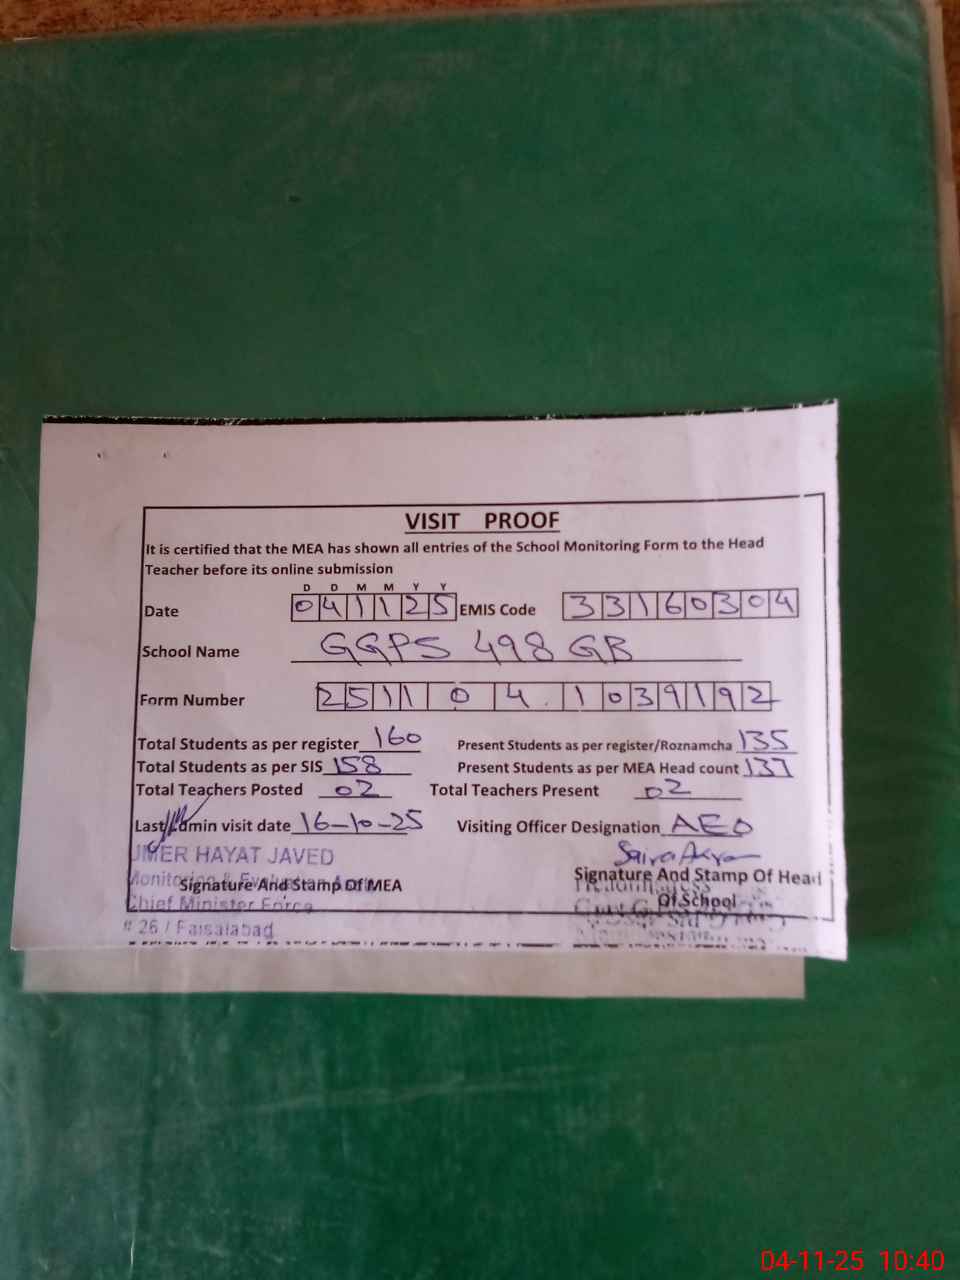 VISIT PROOF
It is certified that the MEA has shown all entries of the School Monitoring Form to the Head
Teacher before its online submission
D D M M Y Y
Date 041125 EMIS Code 33160304
School Name GGPS 498 GB
Form Number 2511 0 4 1039192
Total Students as per register 160 Present Students as per register/Roznamcha 135
Total Students as per SIS 158 Present Students as per MEA Head count 137
Total Teachers Posted 02 Total Teachers Present 02
Last Admin visit date 16-10-25 Visiting Officer Designation AEO
UMER HAYAT JAVED
Monitoring & Evaluation
Signature And Stamp Of MEA Signature And Stamp Of Head
Of School
Chief Minister Force
# 26 / Faisalabad
04-11-25 10:40